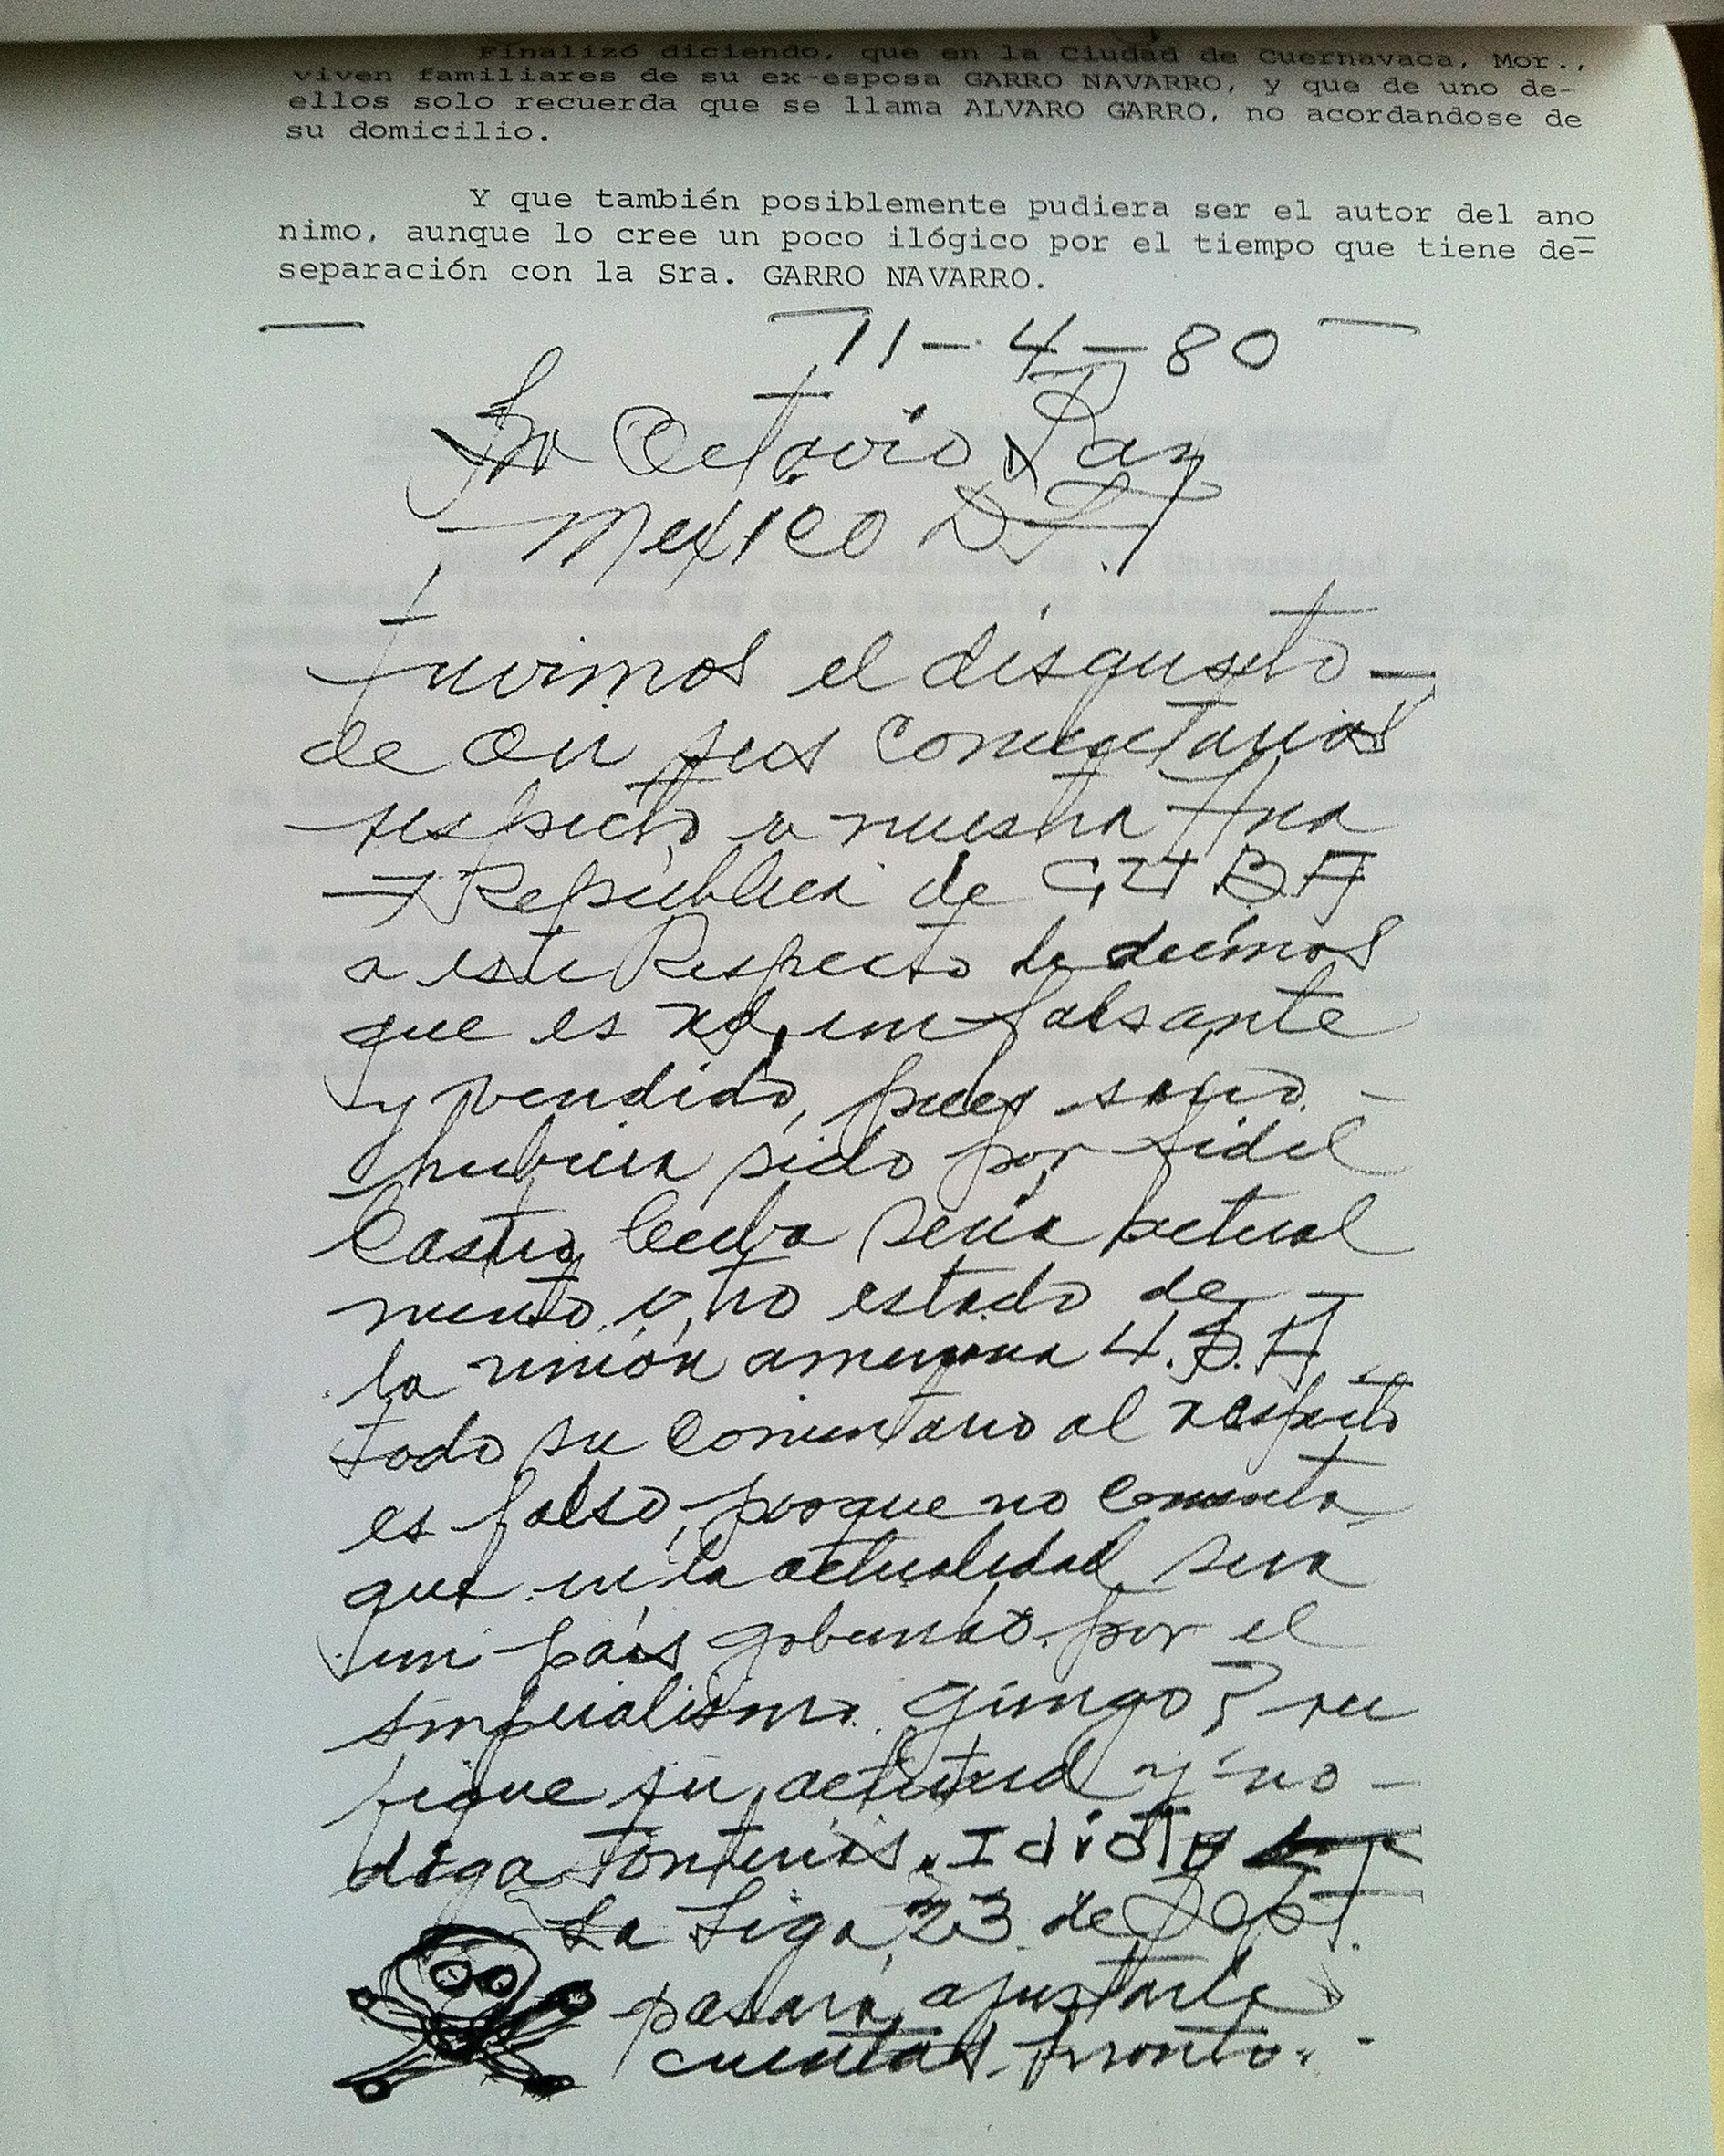 Finalizó diciendo, que en la Ciudad de Cuernavaca, Mor.,
viven familiares de su ex-esposa GARRO NAVARRO, y que de uno de-
ellos solo recuerda que se llama ALVARO GARRO, no acordandose de
su domicilio.
Y que también posiblemente pudiera ser el autor del ano
nimo, aunque lo cree un poco ilógico por el tiempo que tiene de-
separación con la Sra. GARRO NAVARRO.
11-4-80
Sr Octavio Paz
Mexico D.F.
Tuvimos el disgusto -
de oir sus comentarios
respecto a nuestra Hna
República de CUBA
a este Respecto le decimos
que es Ud, un farsante
y vendido, pues si no -
hubiera sido por fidel
Castro, Cuba seria actual
mente otro estado de -
la unión americana U.S.A.
todo su comentario al respecto
es falso, porque no comenta
que en la actualidad seria
un país gobernado por el
imperialismo gringo? rec
fique su actitud y no -
diga tonterias. Idiota
La Liga 23 de Sept.
pasará ajustarle
cuentas pronto. -